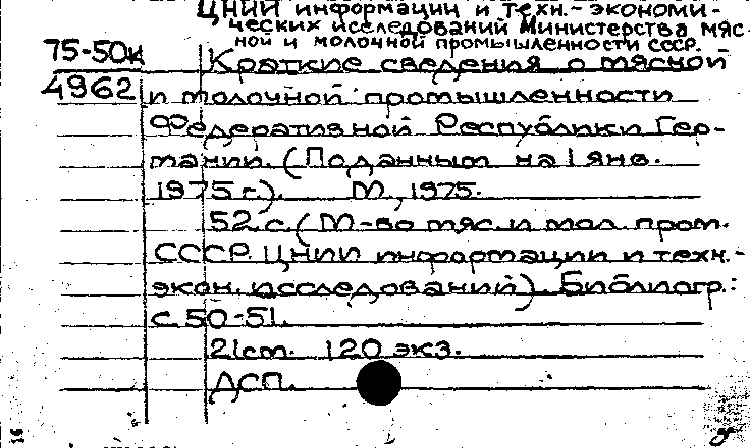 ЦНИИ информации и техн.-экономи-
ческих исследований Министерства мяс-
ной и молочной промышленности СССР.
75-50к
4962
Краткие сведения о мясной
и молочной промышленности
Федеративной Республики Гер-
мании. (По данным на 1 янв.
1975 г.). М., 1975.
52 с. (М-во мяс. и мол. пром.
СССР. ЦНИИ информации и техн.-
экон. исследований). Библиогр.:
с. 50-51.
21 см. 120 экз.
ДСП.
16